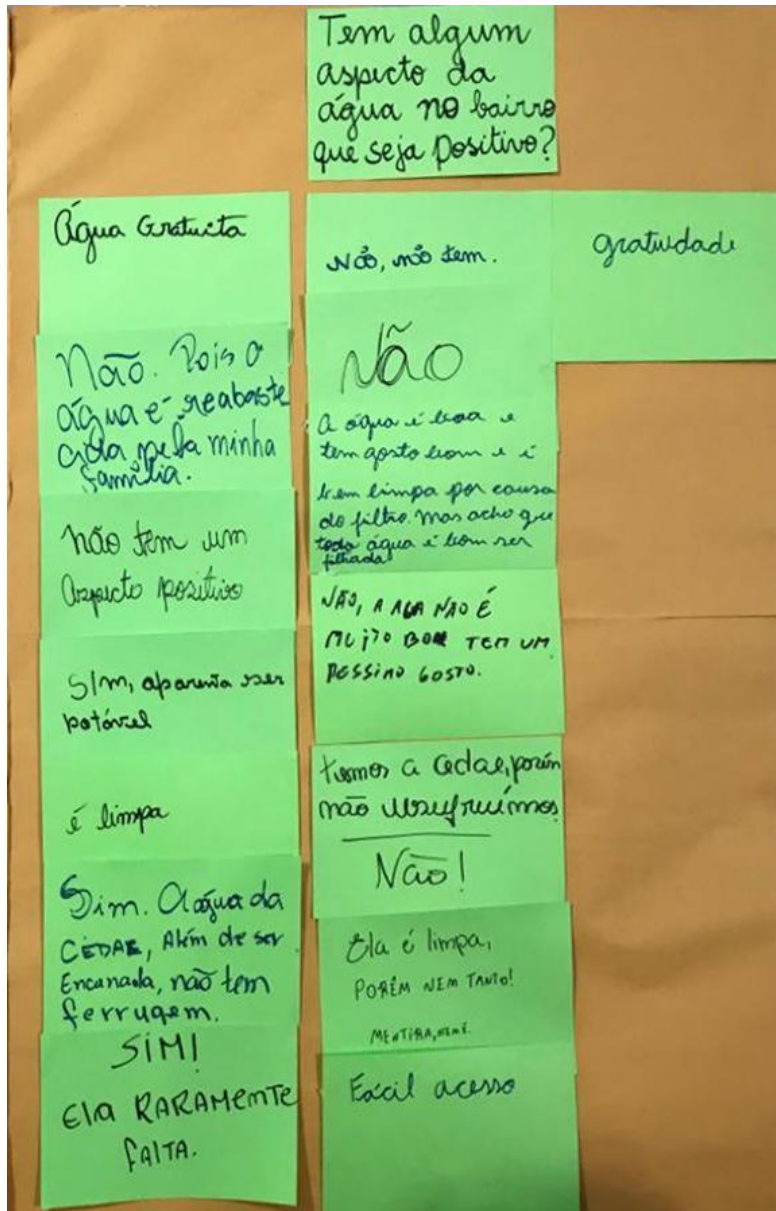 Tem algum
aspecto da
água no bairro
que seja positivo?
Água Gratuita
Não. Pois a
água é reabaste
cida pela minha
família.
não tem um
aspecto positivo
SIM, aparenta ser
potável
é limpa
Sim. A água da
CEDAE, Além de ser
Encanada, não tem
ferrugem.
SIM!
Ela RARAMENTE
FALTA.
Não, não tem.
NÃO
A água é boa e
tem gosto bom e é
bem limpa por causa
do filtro. Mas acho que
toda água é bom ser
filtrada
NÃO, A AGA NÃO É
MUITO BOM TEM UM
PESSIMO GOSTO.
temos a Cedae, porém
não usufruímos
Não!
Ela é limpa,
PORÉM NEM TANTO!
MENTIRA, NEM É.
Fácil acesso
gratuidade